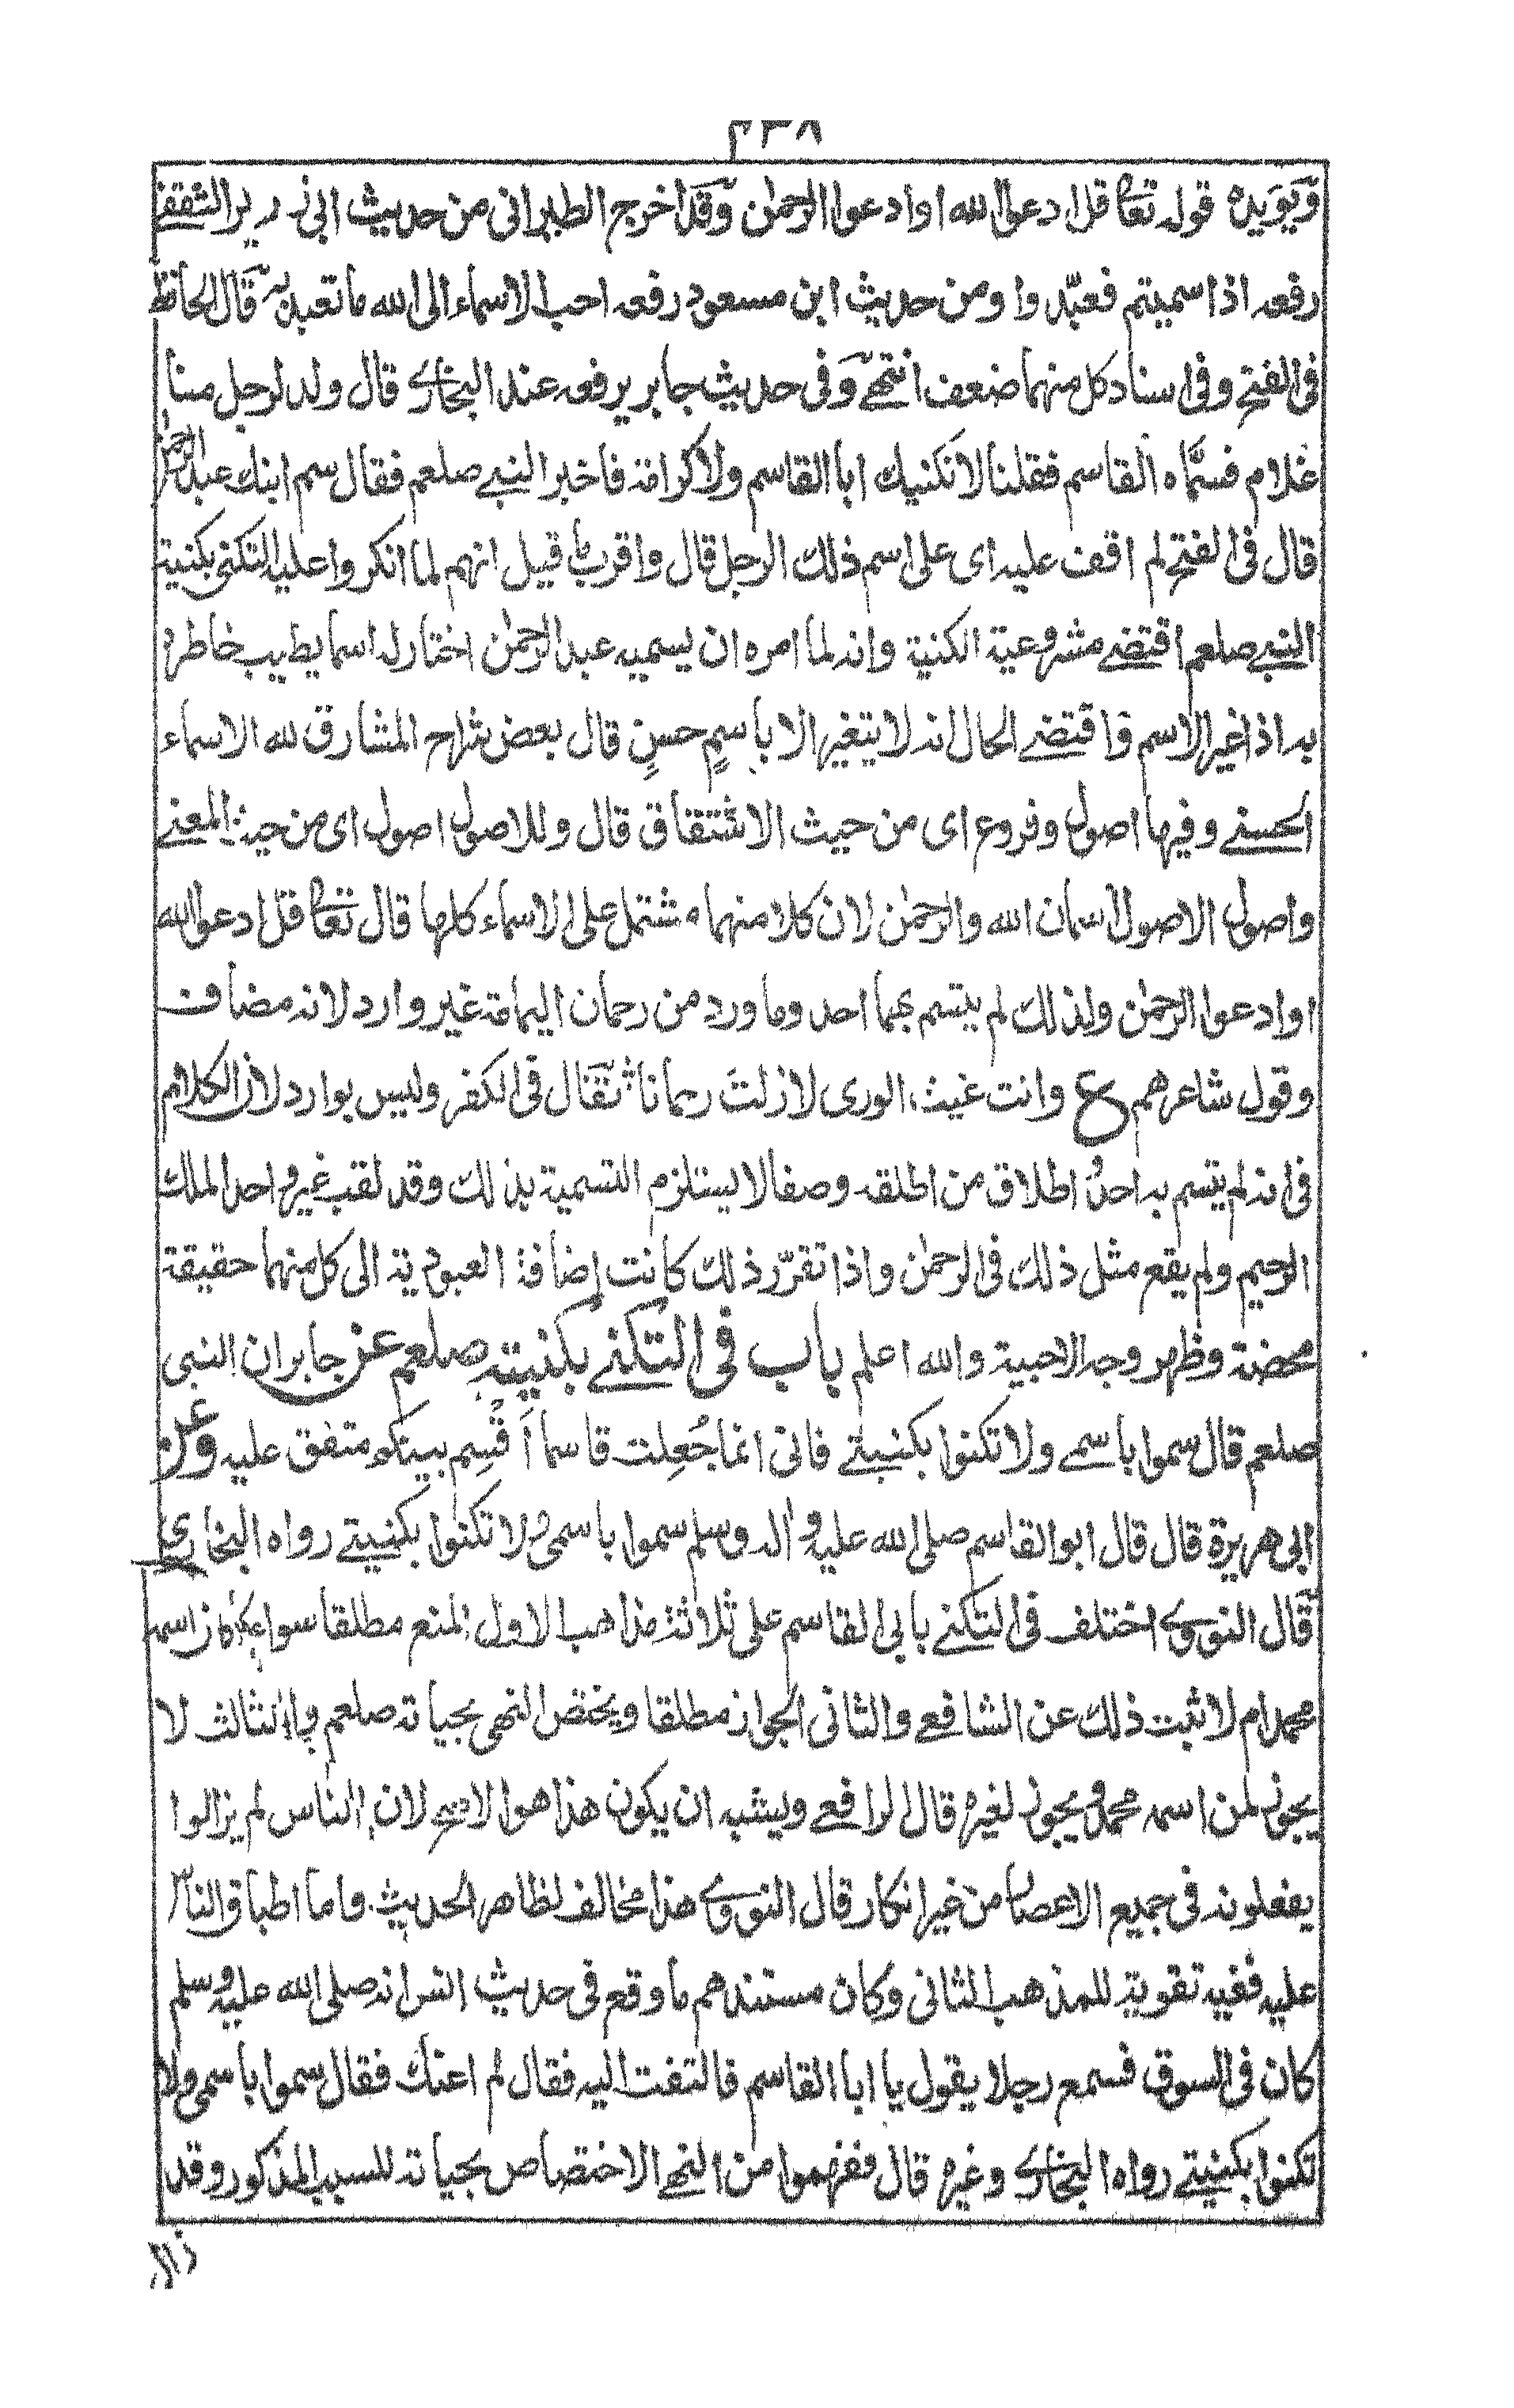 ٢٣٨
ويؤيده قوله تعالى قل ادعوا الله او ادعوا الرحمٰن وقد اخرج الطبراني من حديث ابي زهير الثقفي
رفعه اذا سميتم فعبّدوا ومن حديث ابن مسعود رفعه احب الاسماء الى الله ما تعبد به قال الحافظ
في الفتح وفي اسناد كل منهما ضعف انتهى وفي حديث جابر يرفعه عند البخاري قال ولد لرجل منا
غلام فسمّاه القاسم فقلنا لا نكنيك ابا القاسم ولا كرامة فاخبر النبي صلعم فقال سم ابنك عبد الرحمٰن
قال في الفتح لم اقف عليه اى على اسم ذلك الرجل قال واقرب قيل انهم لما انكروا عليه التكني بكنية
النبي صلعم اقتضى مشروعية الكنية وانه لما امره ان يسميه عبد الرحمٰن اختار له اسما يطيب خاطره
به اذ اغير الاسم واقتضى الحال انه لا يتغير الا باسمٍ حسنٍ قال بعض شراح المشارق لله الاسماء
الحسنى وفيها اصول وفروع اى من حيث الاشتقاق قال وللاصول اصول اى من حيث المعنى
واصول الاصول اسمان الله والرحمٰن لان كلا منهما مشتمل على الاسماء كلها قال تعالى قل ادعوا الله
او ادعوا الرحمٰن ولذلك لم يتسم بهما احد وما ورد من رحمان اليمامة غير وارد لانه مضاف
وقول شاعرهم ع وانت غيث الورى لا زلتَ رحمانا ؛ تقال في الكفر وليس بوارد لان الكلام
في انه لم يتسم به احدٌ واطلاق من اطلقه وصفا لا يستلزم التسمية بذلك وقد لقب غير واحد الملك
الرحيم ولم يقع مثل ذلك في الرحمٰن واذا تقرّر ذلك كانت اضافة العبودية الى كل منهما حقيقة
محضة وظهر وجه الاحبية والله اعلم باب في التكني بكنيته صلعم عن جابر ان النبي
صلعم قال سموا باسمي ولا تكنوا بكنيتي فاني انما جُعِلت قاسما اَقْسِم بينكم متفق عليه وعن
ابي هريرة قال قال ابو القاسم صلى الله عليه واله وسلم سموا باسمى ولا تكنوا بكنيتي رواه البخاري
قال النووي اختلف في التكني بابي القاسم على ثلاثة مذاهب الاول المنع مطلقا سواء كان اسمه
محمد ام لا ثبت ذلك عن الشافعي والثاني الجواز مطلقا ويختص النهى بحياته صلعم والثالث لا
يجوز لمن اسمه محمد ويجوز لغيره قال الرافعي ويشبه ان يكون هذا هو الاصح لان الناس لم يزالوا
يفعلونه في جميع الاعصار من غير انكار قال النووي هذا مخالف لظاهر الحديث واما اطباق الناس
عليه ففيه تقوية للمذهب الثاني وكان مستندهم ما وقع في حديث انس انه صلى الله عليه وسلم
كان في السوق فسمع رجلا يقول يا ابا القاسم فالتفت اليه فقال لم اعنك فقال سموا باسمى ولا
تكنوا بكنيتي رواه البخاري وغيره قال ففهموا من النهي الاختصاص بحياته للسبب المذكور وقد
زال